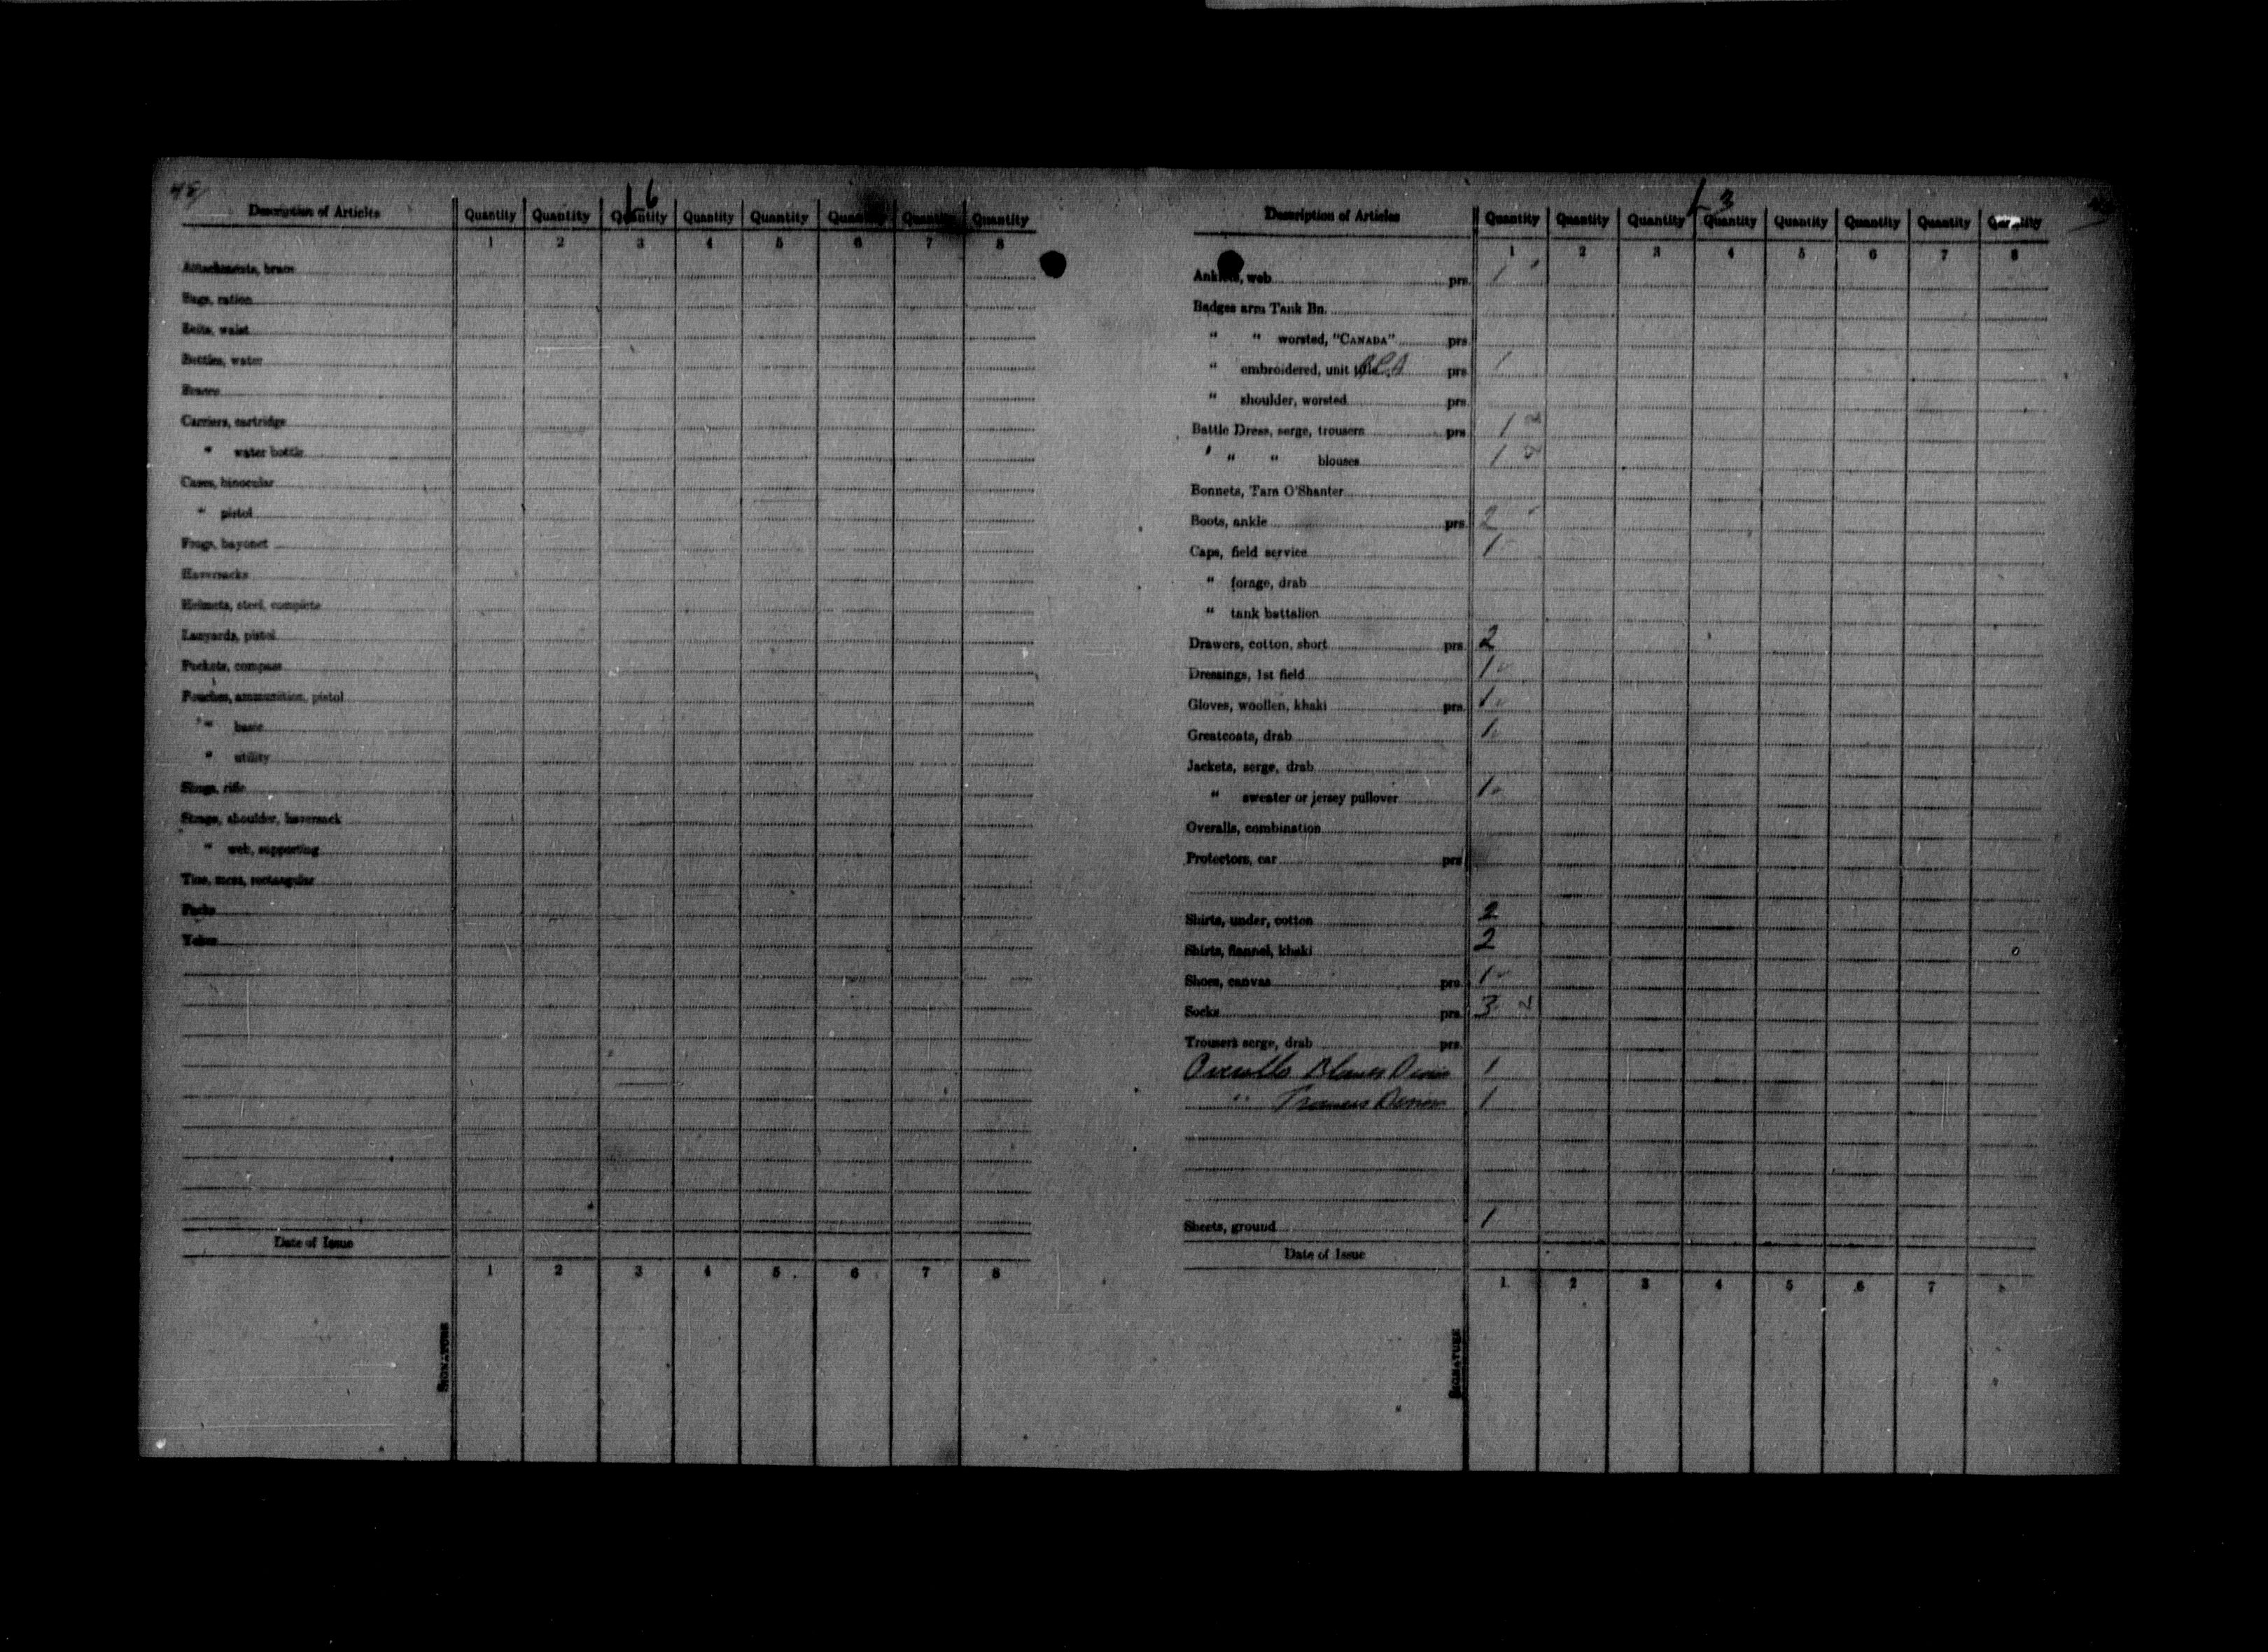 48
L 6
Description of Articles Quantity Quantity Quantity Quantity Quantity Quantity Quantity Quantity
1 2 3 4 5 6 7 8
Attachments, brace
Bags, ration
Belts, waist
Bottles, water
Braces
Carriers, cartridge
" water bottle
Cases, binocular
" pistol
Frogs, bayonet
Haversacks
Helmets, steel, complete
Lanyards, pistol
Pockets, compass
Pouches, ammunition, pistol
" basic
" utility
Slings, rifle
Straps, shoulder, haversack
" web, supporting
Tins, mess, rectangular
Packs
Yokes
Date of Issue
1 2 3 4 5 6 7 8
SIGNATURE
L 3
Description of Articles Quantity Quantity Quantity Quantity Quantity Quantity Quantity Quantity
1 2 3 4 5 6 7 8
Anklets, web prs. 1
Badges arm Tank Bn.
" " worsted, "CANADA" prs.
" embroidered, unit title prs. 1
" shoulder, worsted prs.
Battle Dress, serge, trousers prs 1 2
" " " blouses 1 2
Bonnets, Tam O'Shanter
Boots, ankle prs. 2
Caps, field service 1
" forage, drab
" tank battalion
Drawers, cotton, short prs 2
Dressings, 1st field 1
Gloves, woollen, khaki prs. 1
Greatcoats, drab 1
Jackets, serge, drab
" sweater or jersey pullover 1
Overalls, combination
Protectors, ear prs
Shirts, under, cotton 2
Shirts, flannel, khaki 2
Shoes, canvas prs. 1
Socks prs. 3 2
Trousers serge, drab prs.
Overalls Blouses 1
" Trousers 1
Sheets, ground 1
Date of Issue
1 2 3 4 5 6 7
SIGNATURE